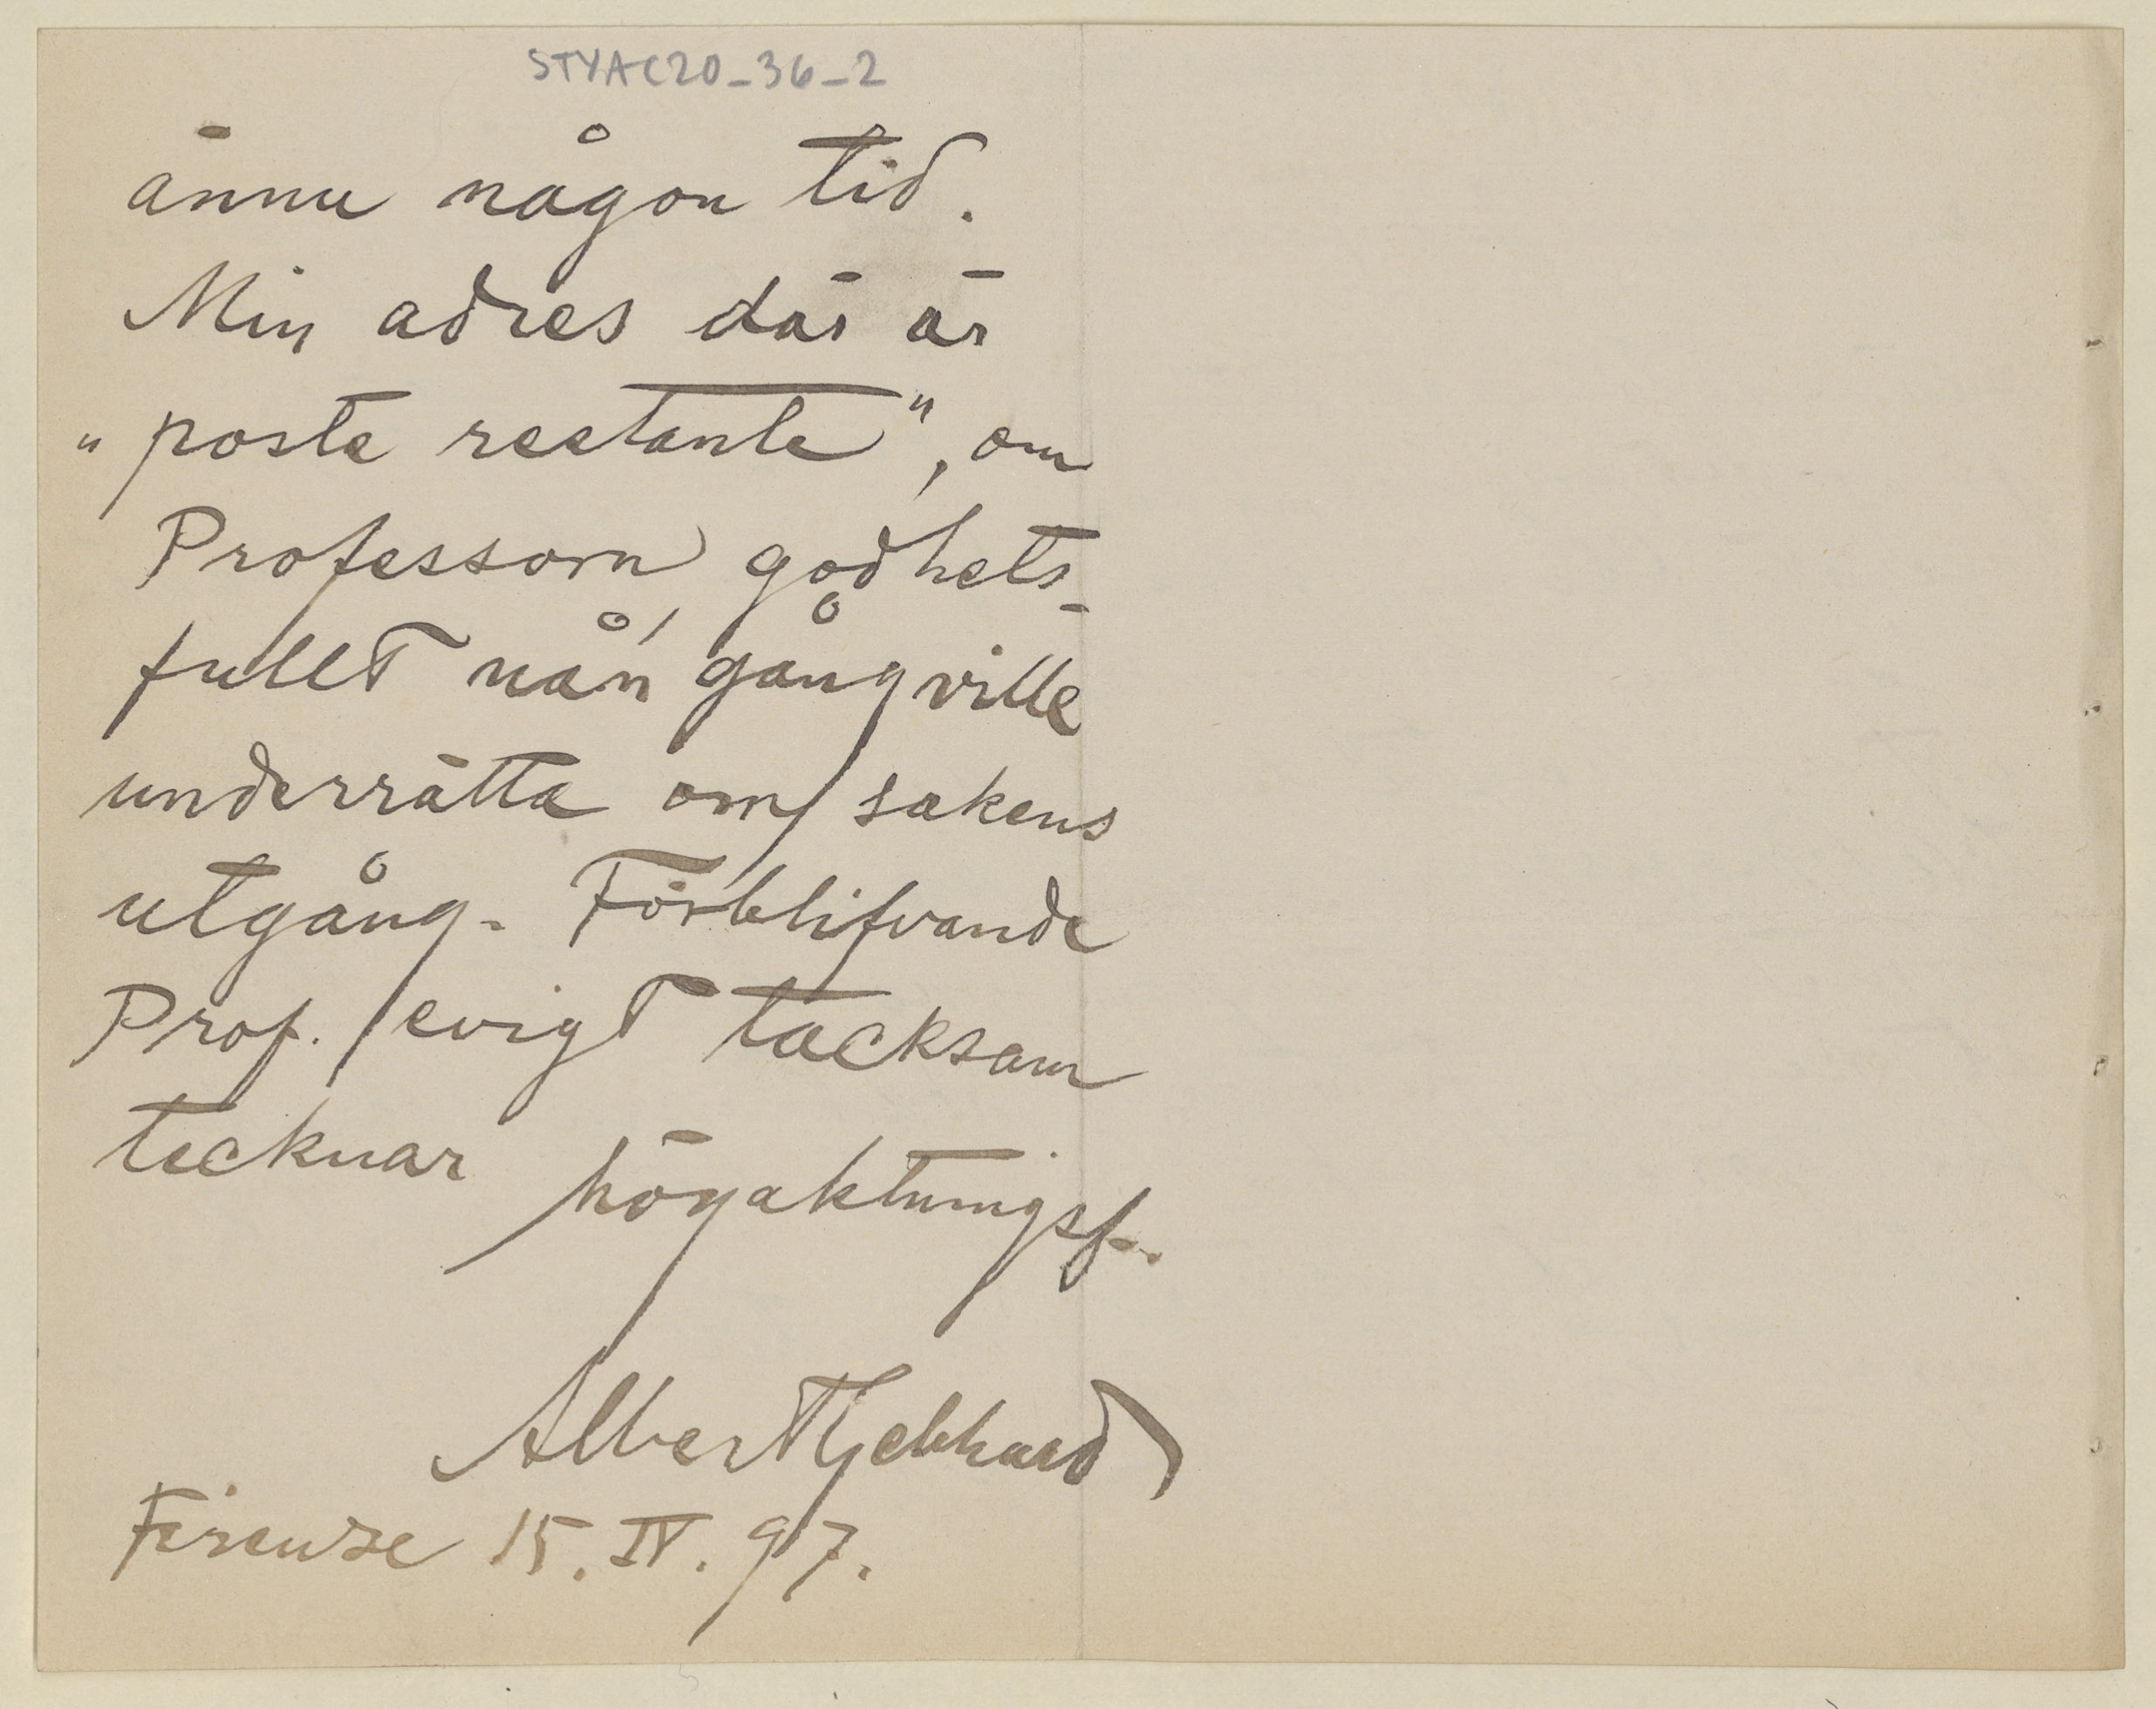 STYAC20_36_2
ännu någon tid.
Min adres där är
"poste restante", om
Professorn godhets-
fullt nån' gång ville
underrätta om sakens
utgång. Förblifvande
Prof. evigt tacksam
tecknar högaktningsf.
Albert Gebhard
Firenze 15. IV. 97.